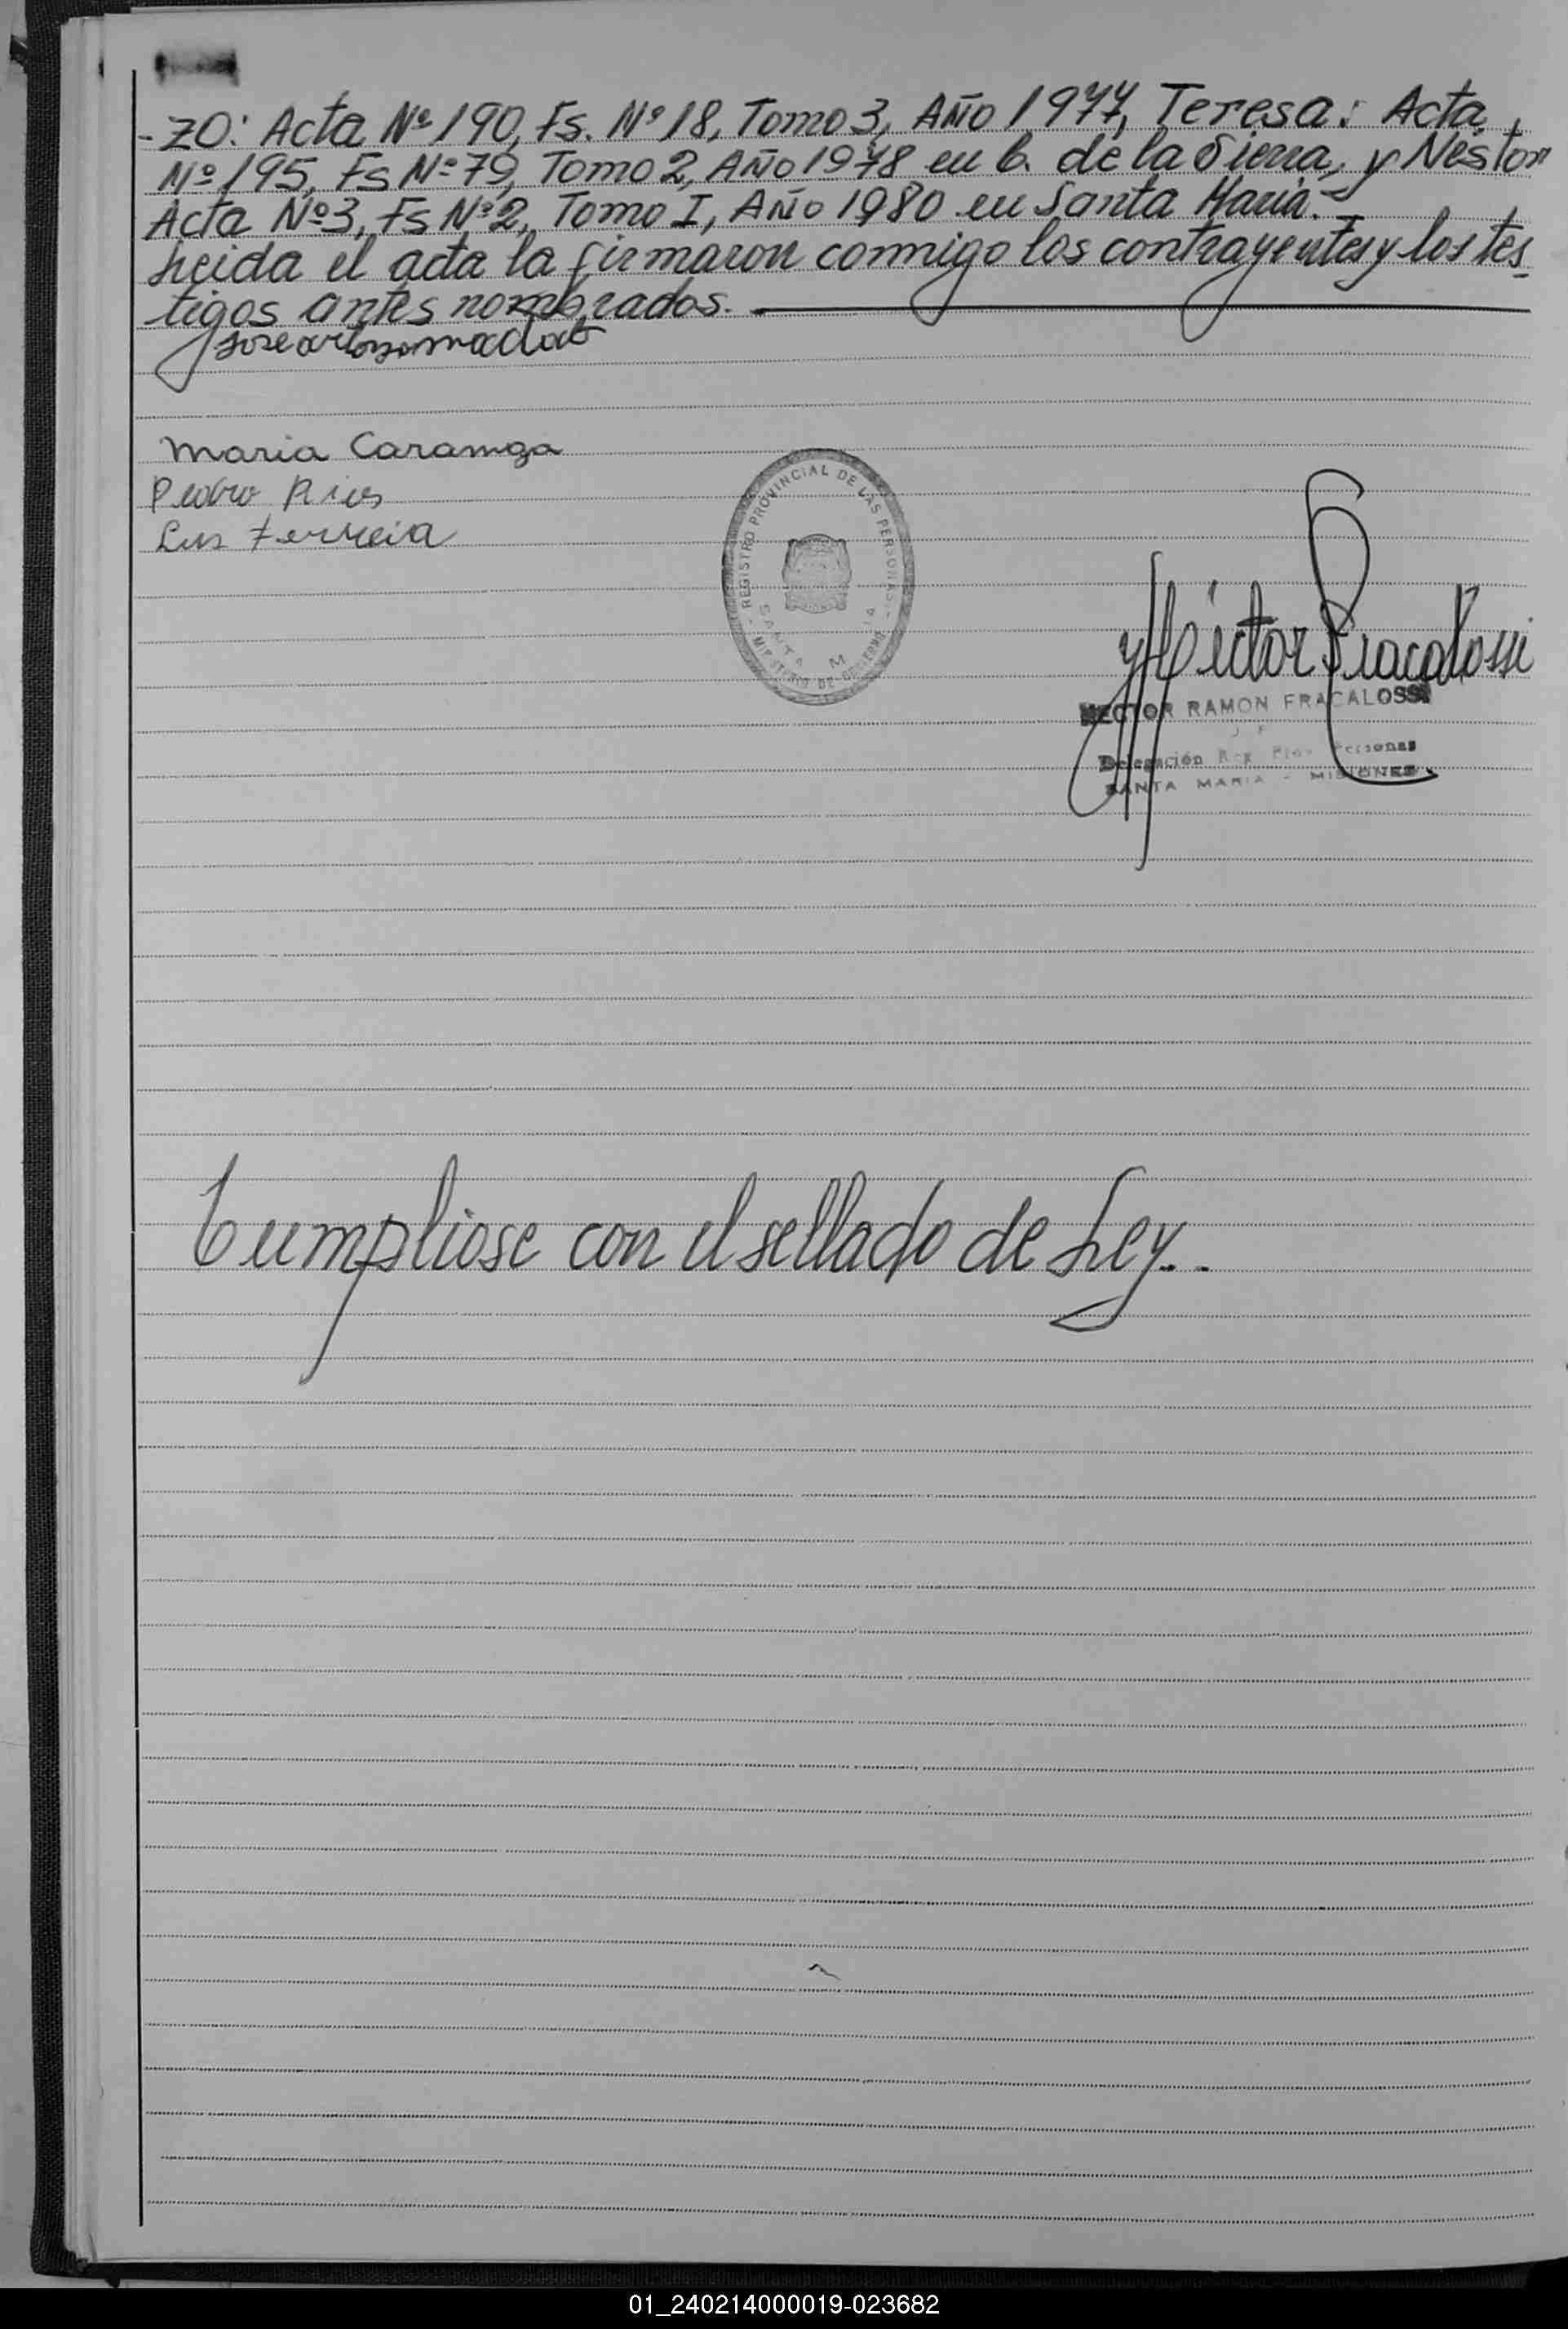 -zo: Acta Nº 190, Fs. Nº 18, Tomo 3, Año 1977, Teresa: Acta
Nº 195, Fs Nº 79, Tomo 2, Año 1978 en C. de la Sierra, y Nestor
Acta Nº 3, Fs Nº 2, Tomo I, Año 1980 en Santa María.-
Leida el acta la firmaron conmigo los contrayentes y los tes
tigos antes nombrados.
Maria Caramga
Pedro Rios
Luis Ferreira
REGISTRO PROVINCIAL DE LAS PERSONAS
SANTA M IA
MINISTERIO DE GOBIERNO
Héctor Fracalossi
HECTOR RAMON FRACALOSSI
Delegación Reg. Prov. Personas
SANTA MARIA - MISIONES
Cumpliose con el sellado de Ley..
01_240214000019-023682